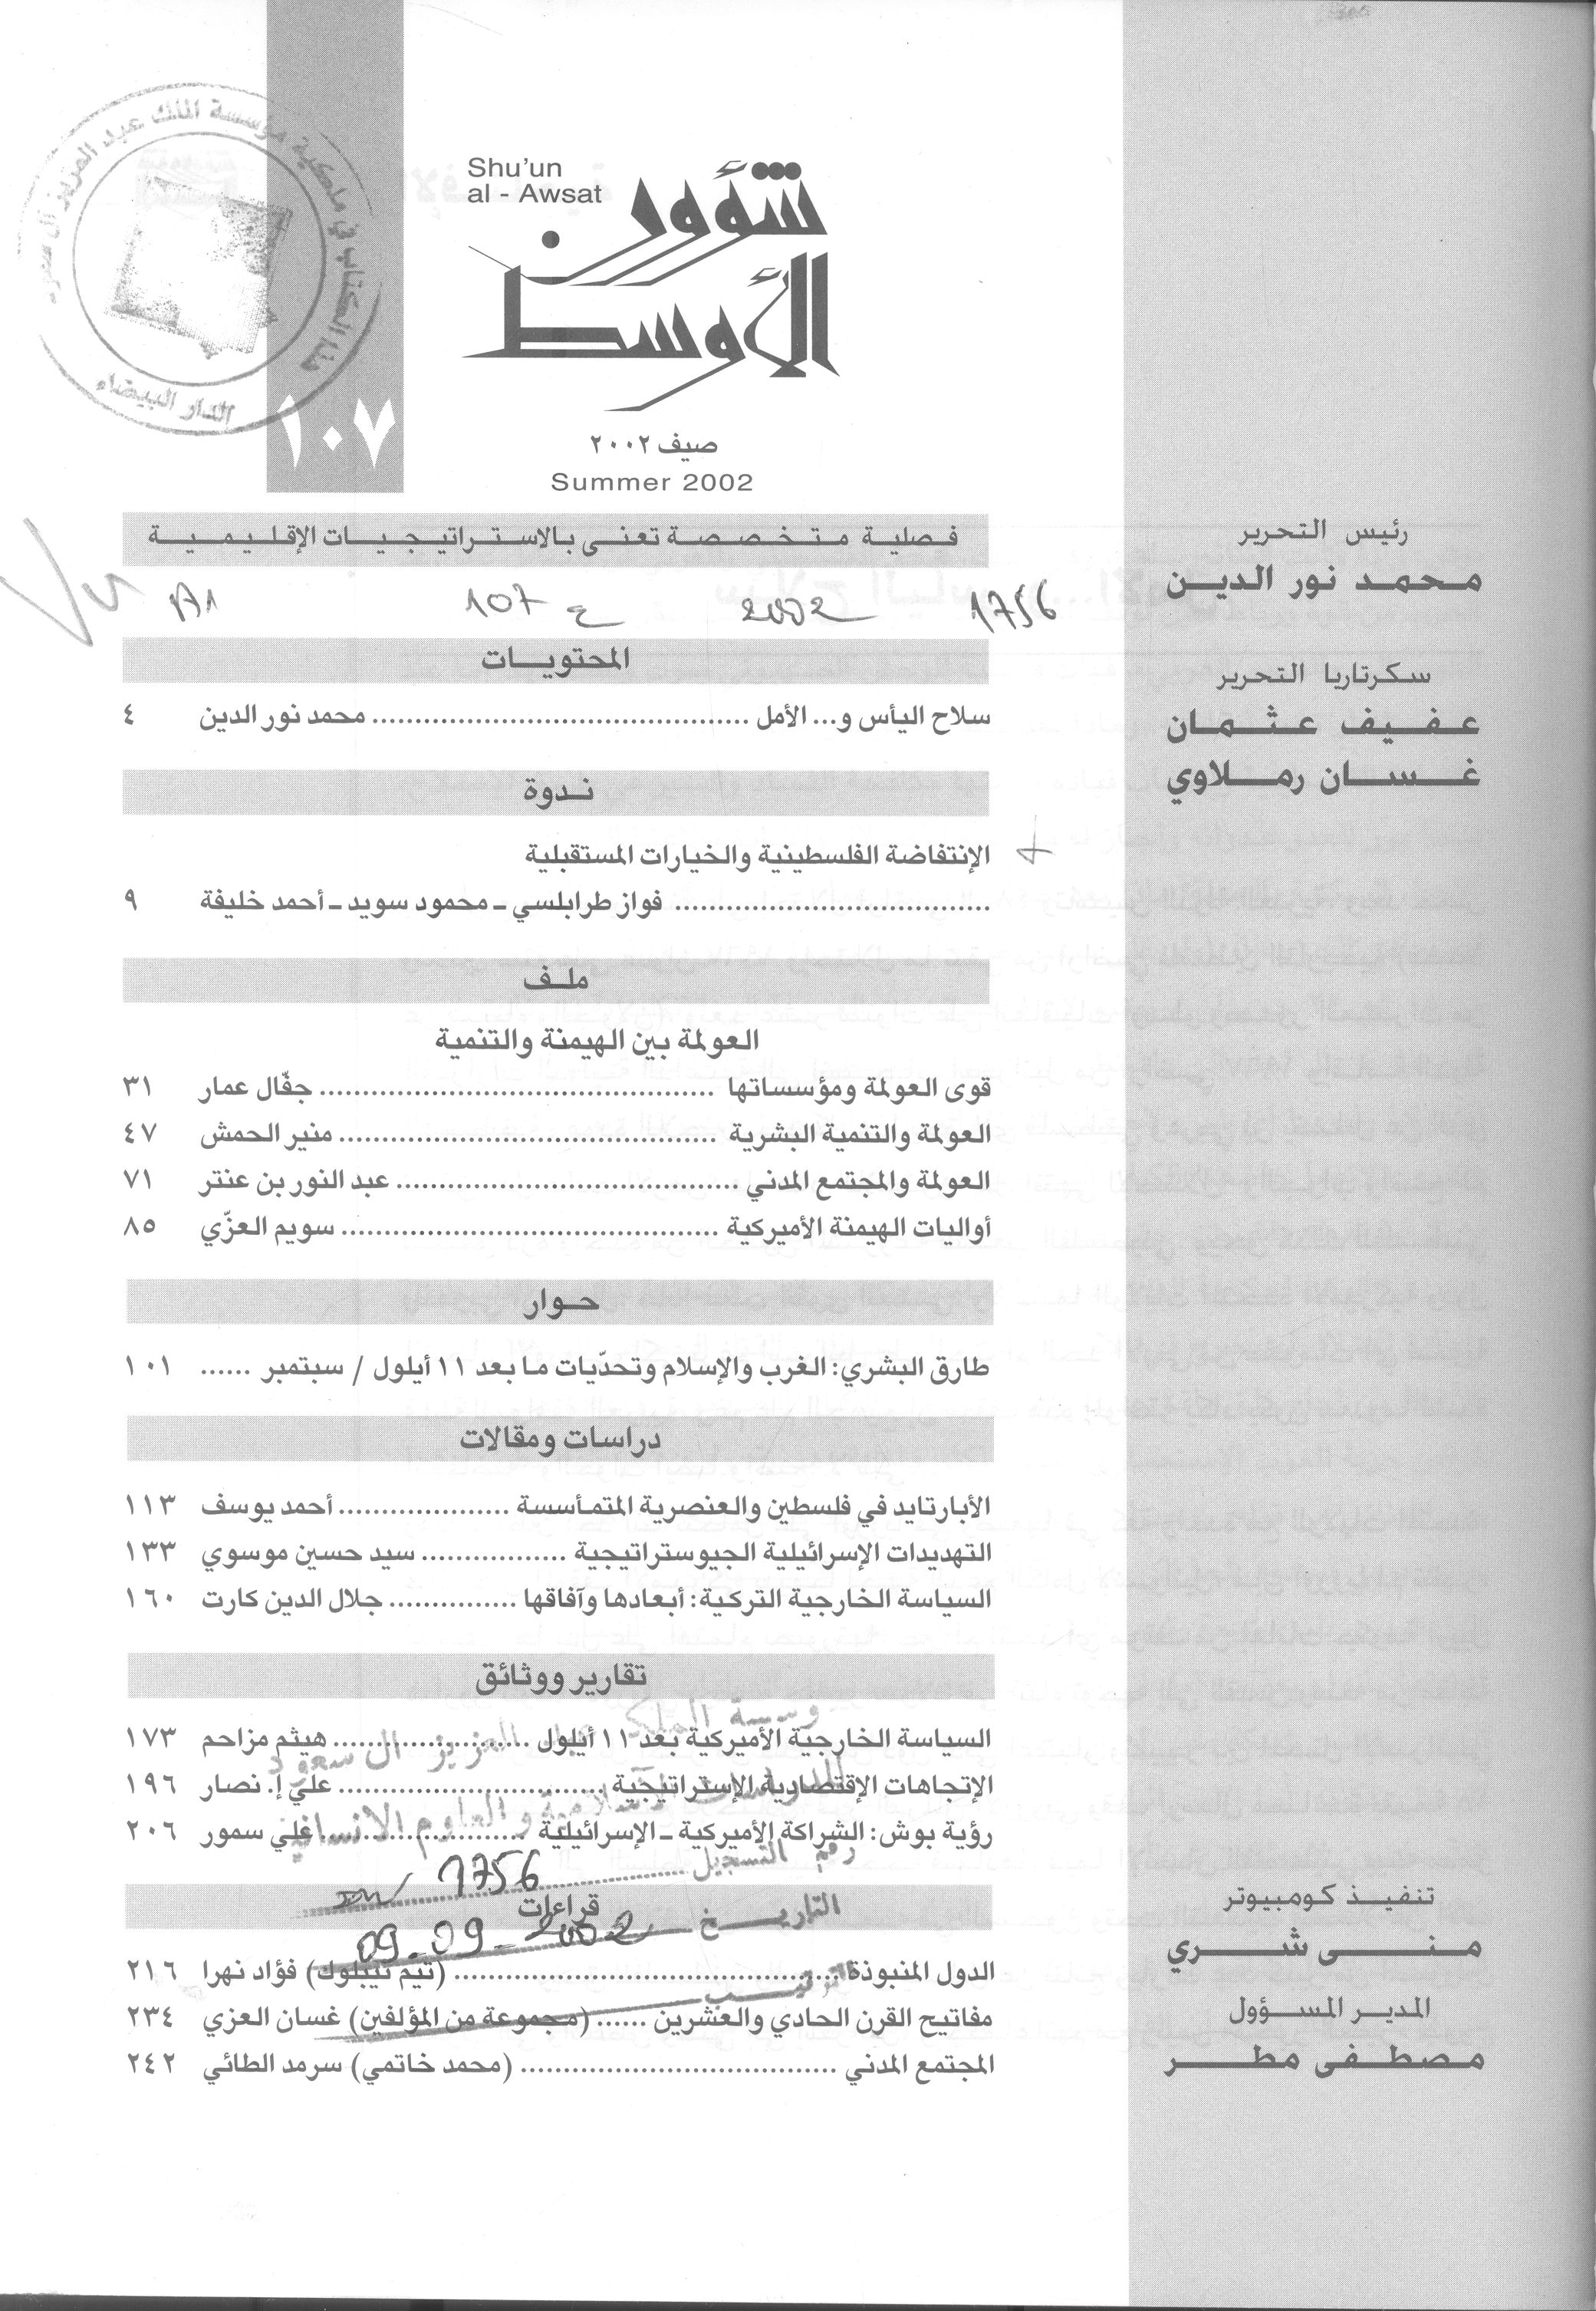 Shu'un
al - Awsat
شؤون
الأوسط
١٠٧
صيف ٢٠٠٢
Summer 2002
فصلية متخصصة تعنى بالاستراتيجيات الإقليمية
1756 2002 ع 107
المحتويات
سلاح اليأس و... الأمل ............ محمد نور الدين ٤
ندوة
الإنتفاضة الفلسطينية والخيارات المستقبلية
............ فواز طرابلسي - محمود سويد - أحمد خليفة ٩
ملف
العولمة بين الهيمنة والتنمية
قوى العولمة ومؤسساتها ............ جفّال عمار ٣١
العولمة والتنمية البشرية ............ منير الحمش ٤٧
العولمة والمجتمع المدني ............ عبد النور بن عنتر ٧١
أواليات الهيمنة الأميركية ............ سويم العزّي ٨٥
حوار
طارق البشري: الغرب والإسلام وتحدّيات ما بعد ١١ أيلول / سبتمبر ...... ١٠١
دراسات ومقالات
الأبارتايد في فلسطين والعنصرية المتمأسسة ............ أحمد يوسف ١١٣
التهديدات الإسرائيلية الجيوستراتيجية ............ سيد حسين موسوي ١٣٣
السياسة الخارجية التركية: أبعادها وآفاقها ............ جلال الدين كارت ١٦٠
تقارير ووثائق
السياسة الخارجية الأميركية بعد ١١ أيلول ............ هيثم مزاحم ١٧٣
الإتجاهات الإقتصادية الإستراتيجية ............ علي إ. نصار ١٩٦
رؤية بوش: الشراكة الأميركية - الإسرائيلية ............ علي سمور ٢٠٦
قراءات
الدول المنبوذة ............ (تيم نيبلوك) فؤاد نهرا ٢١٦
مفاتيح القرن الحادي والعشرين ...... (مجموعة من المؤلفين) غسان العزي ٢٣٤
المجتمع المدني ............ (محمد خاتمي) سرمد الطائي ٢٤٢
رئيس التحرير
محمد نور الدين
سكرتاريا التحرير
عفيف عثمان
غسان رملاوي
تنفيذ كومبيوتر
منى شري
المدير المسؤول
مصطفى مطر
هذا الكتاب في ملكية مؤسسة الملك عبد العزيز آل سعود
الدار البيضاء
مؤسسة الملك عبد العزيز آل سعود
للدراسات الإسلامية والعلوم الإنسانية
رقم التسجيل 1756
التاريخ 09-09-2002